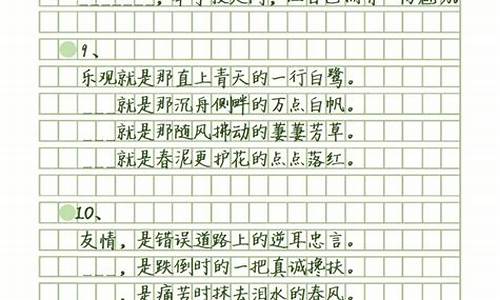 9、
乐观就是那直上青天的一行白鹭。
___就是那沉舟侧畔的万点白帆。
___就是那随风拂动的萋萋芳草。
___就是春泥更护花的点点落红。
10、
友情，是错误道路上的逆耳忠言。
___，是跌倒时的一把真诚搀扶。
___，是痛苦时抹去泪水的春风。